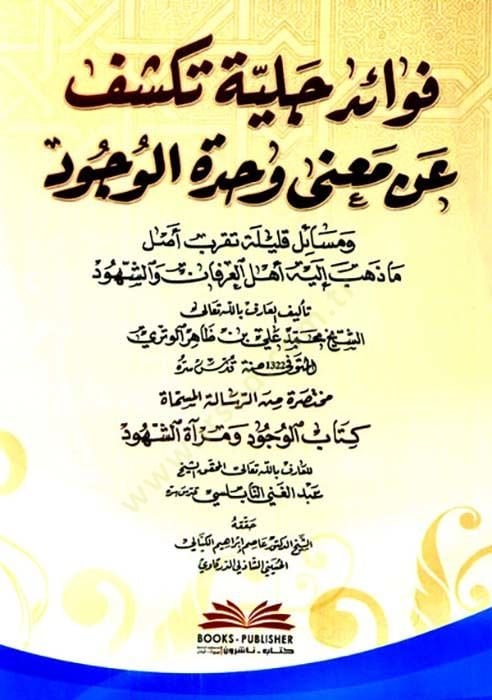 فوائد جلية تكشف
عن معنى وحدة الوجود
ومسائل قليلة تقرب أصل
ما ذهب إليه أهل العرفان والشهود
تأليف العارف بالله تعالى
الشيخ محمد علي بن ظاهر الوتري
المتوفى 1322 سنة قدس سره
مختصرة من الرسالة المسماة
كتاب الوجود ومرآة الشهود
للعارف بالله تعالى المحقق الشيخ
عبد الغني النابلسي قدس سره
حققه
الشيخ الدكتور عاصم إبراهيم الكيالي
الحسيني الشاذلي الدرقاوي
BOOKS - PUBLISHER
كتاب - ناشرون